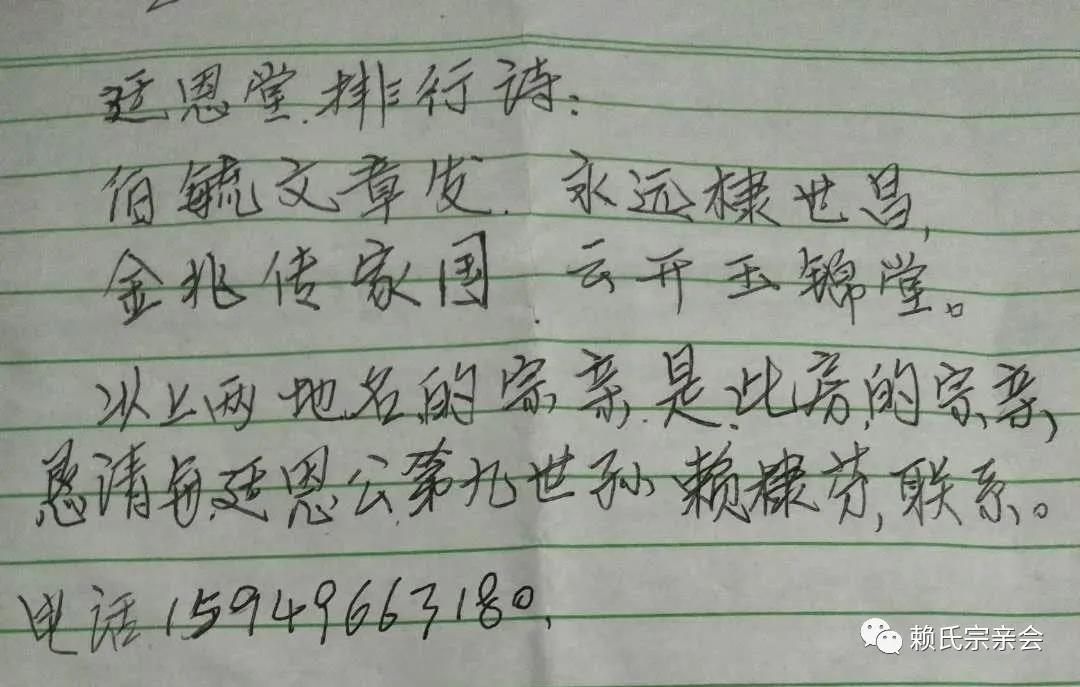 廷恩堂.排行诗:
伯毓文章发. 永远棣世昌,
金兆传家国. 云开玉锦堂。
以上两地名的宗亲,是此房的宗亲,
恳请与廷恩公第九世孙赖棣芬,联系。
电话15949663180,
赖氏宗亲会